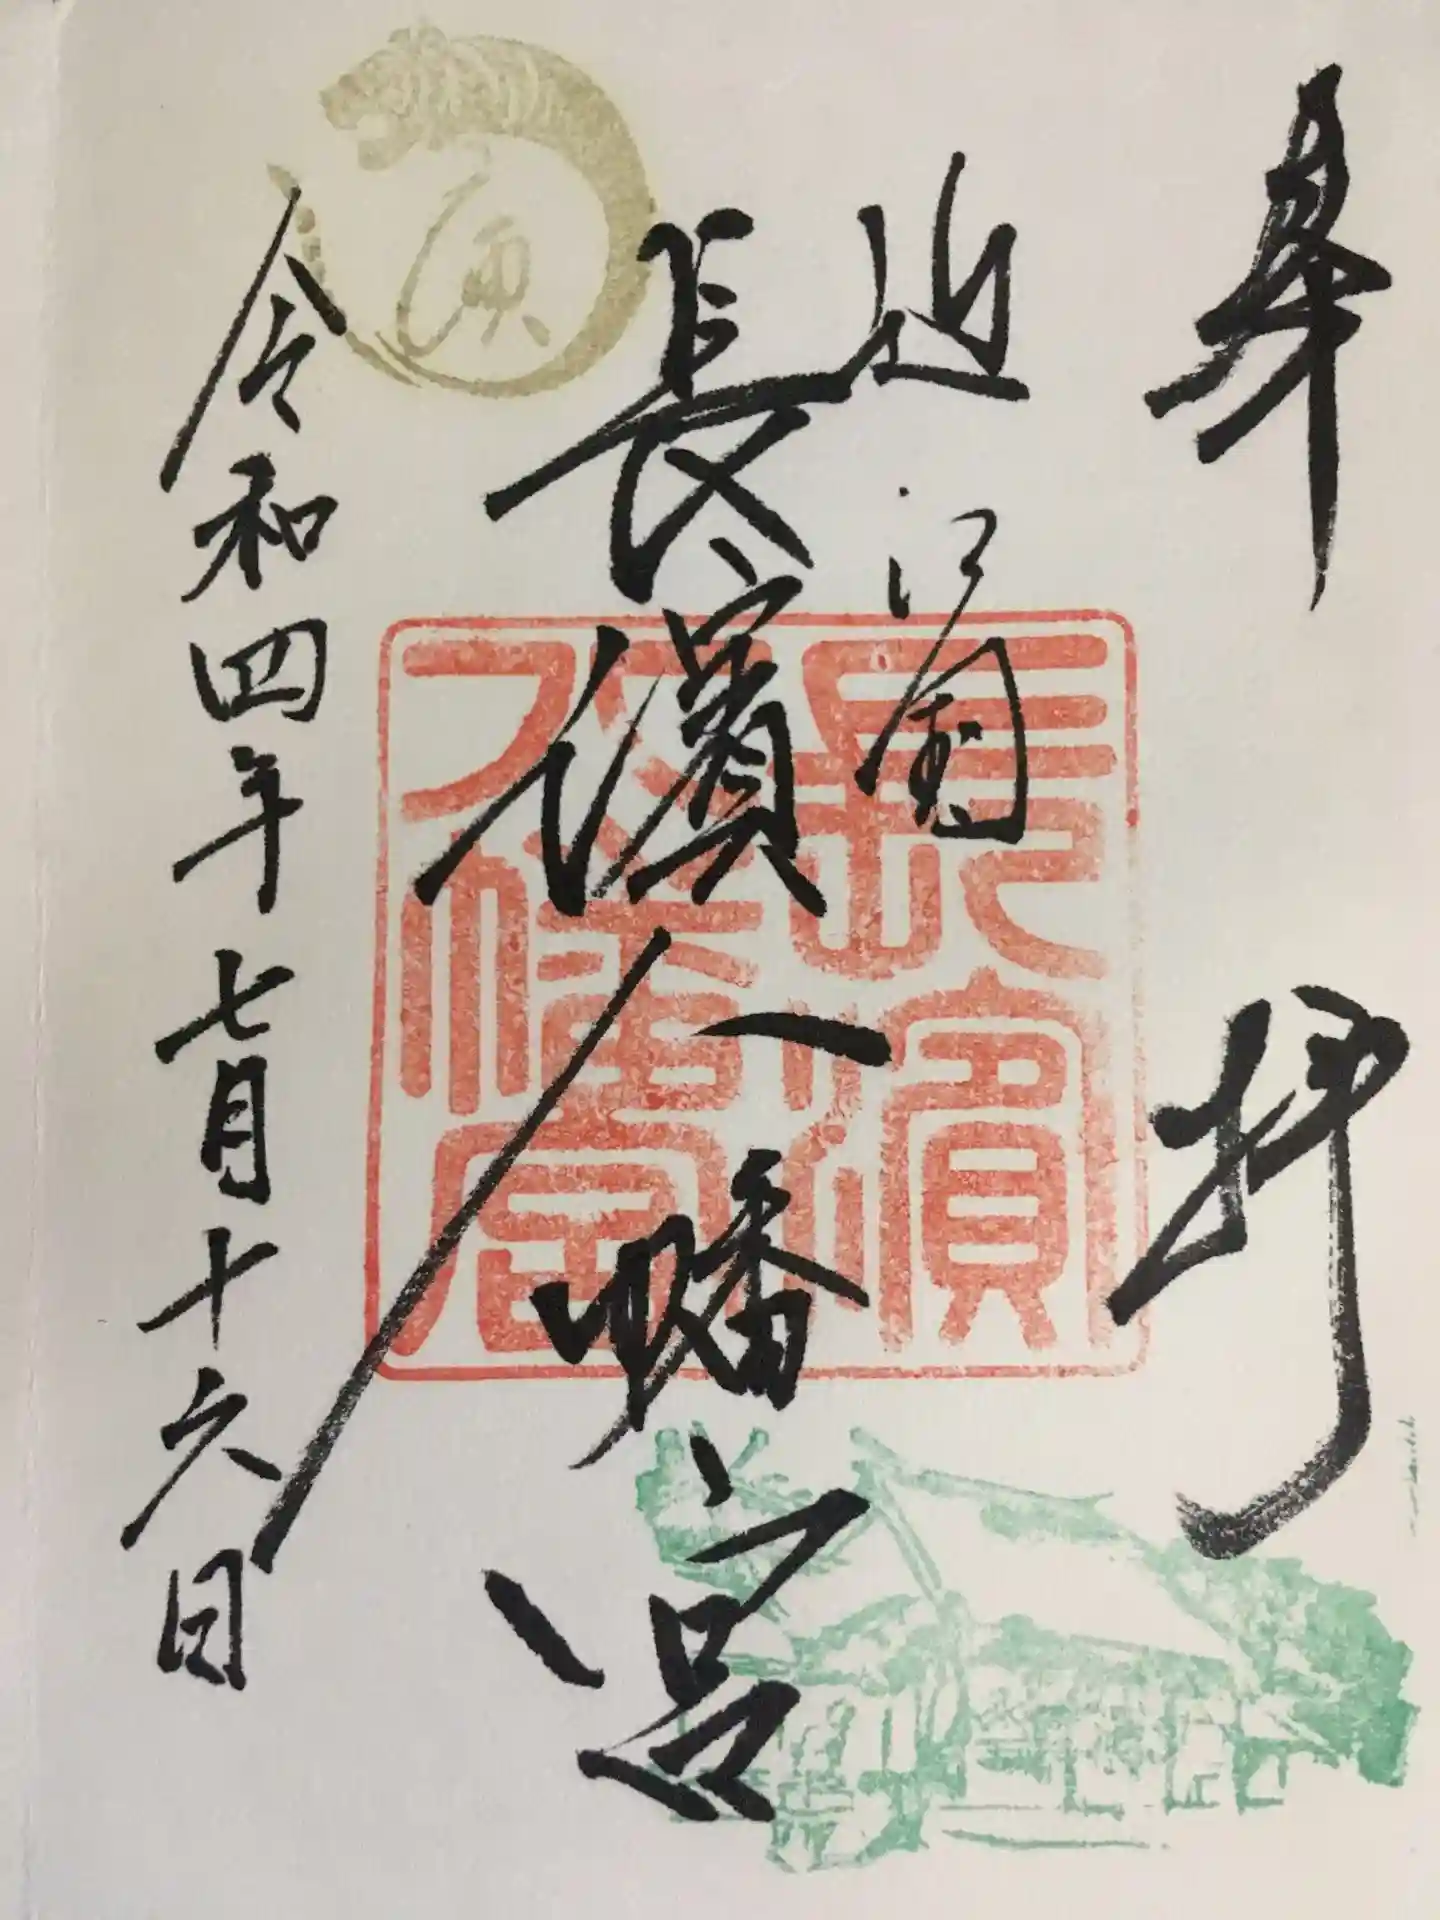 奉拝
近江国
長濱八幡宮
長濱
八幡宮
寅
令和四年七月十六日